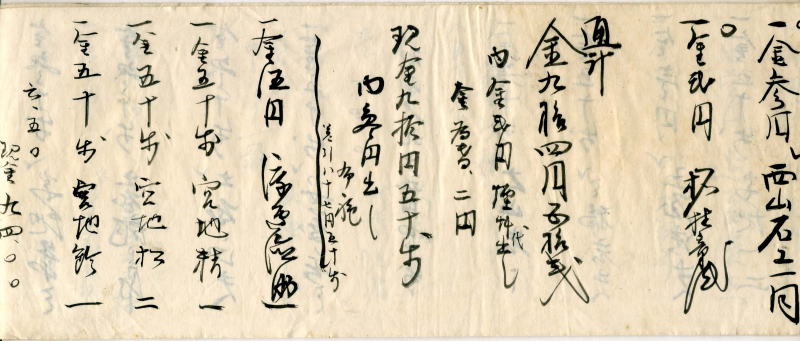 一金参円 西山石工一同
一金弐円
通計
金九拾四円五拾銭
内金弐円煙草代出し
金 二円
現金九拾円五十銭
内参円出し
布施
差引八十七円五十銭
一金伍円 渡邊 助
一金五十銭 宮地精一
一金五十銭 宮地松二
一金五十銭 宮地鈴一
六、五〇
現金九四、〇〇